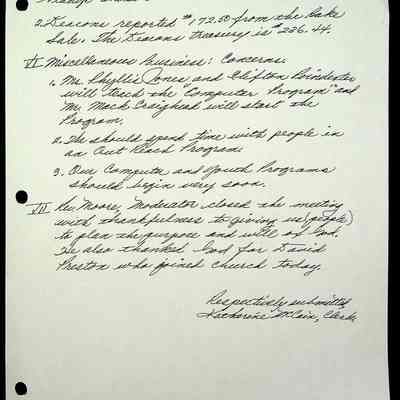 2. Deacons reported $172.50 from the Bake
Sale. The Deacons treasury is $236.44.
VI Miscellaneous Business: Concerns.
1. Ms. Phyllis Jones and Clifton Poindexter
will teach the "Computer Program" and
Mr. Mack Craighead will start the
Program.
2. We should spend time with people in
an Out Reach Program
3. Our Computer and Youth Programs
should begin very soon.
VII Rev. Moore, Moderator closed the meeting
with thankfulness to giving us (people)
to plan the purpose and will of God.
He also thanked God for David
Preston who joined church today.
Respectively submitted,
Katherine McCain, Clerk